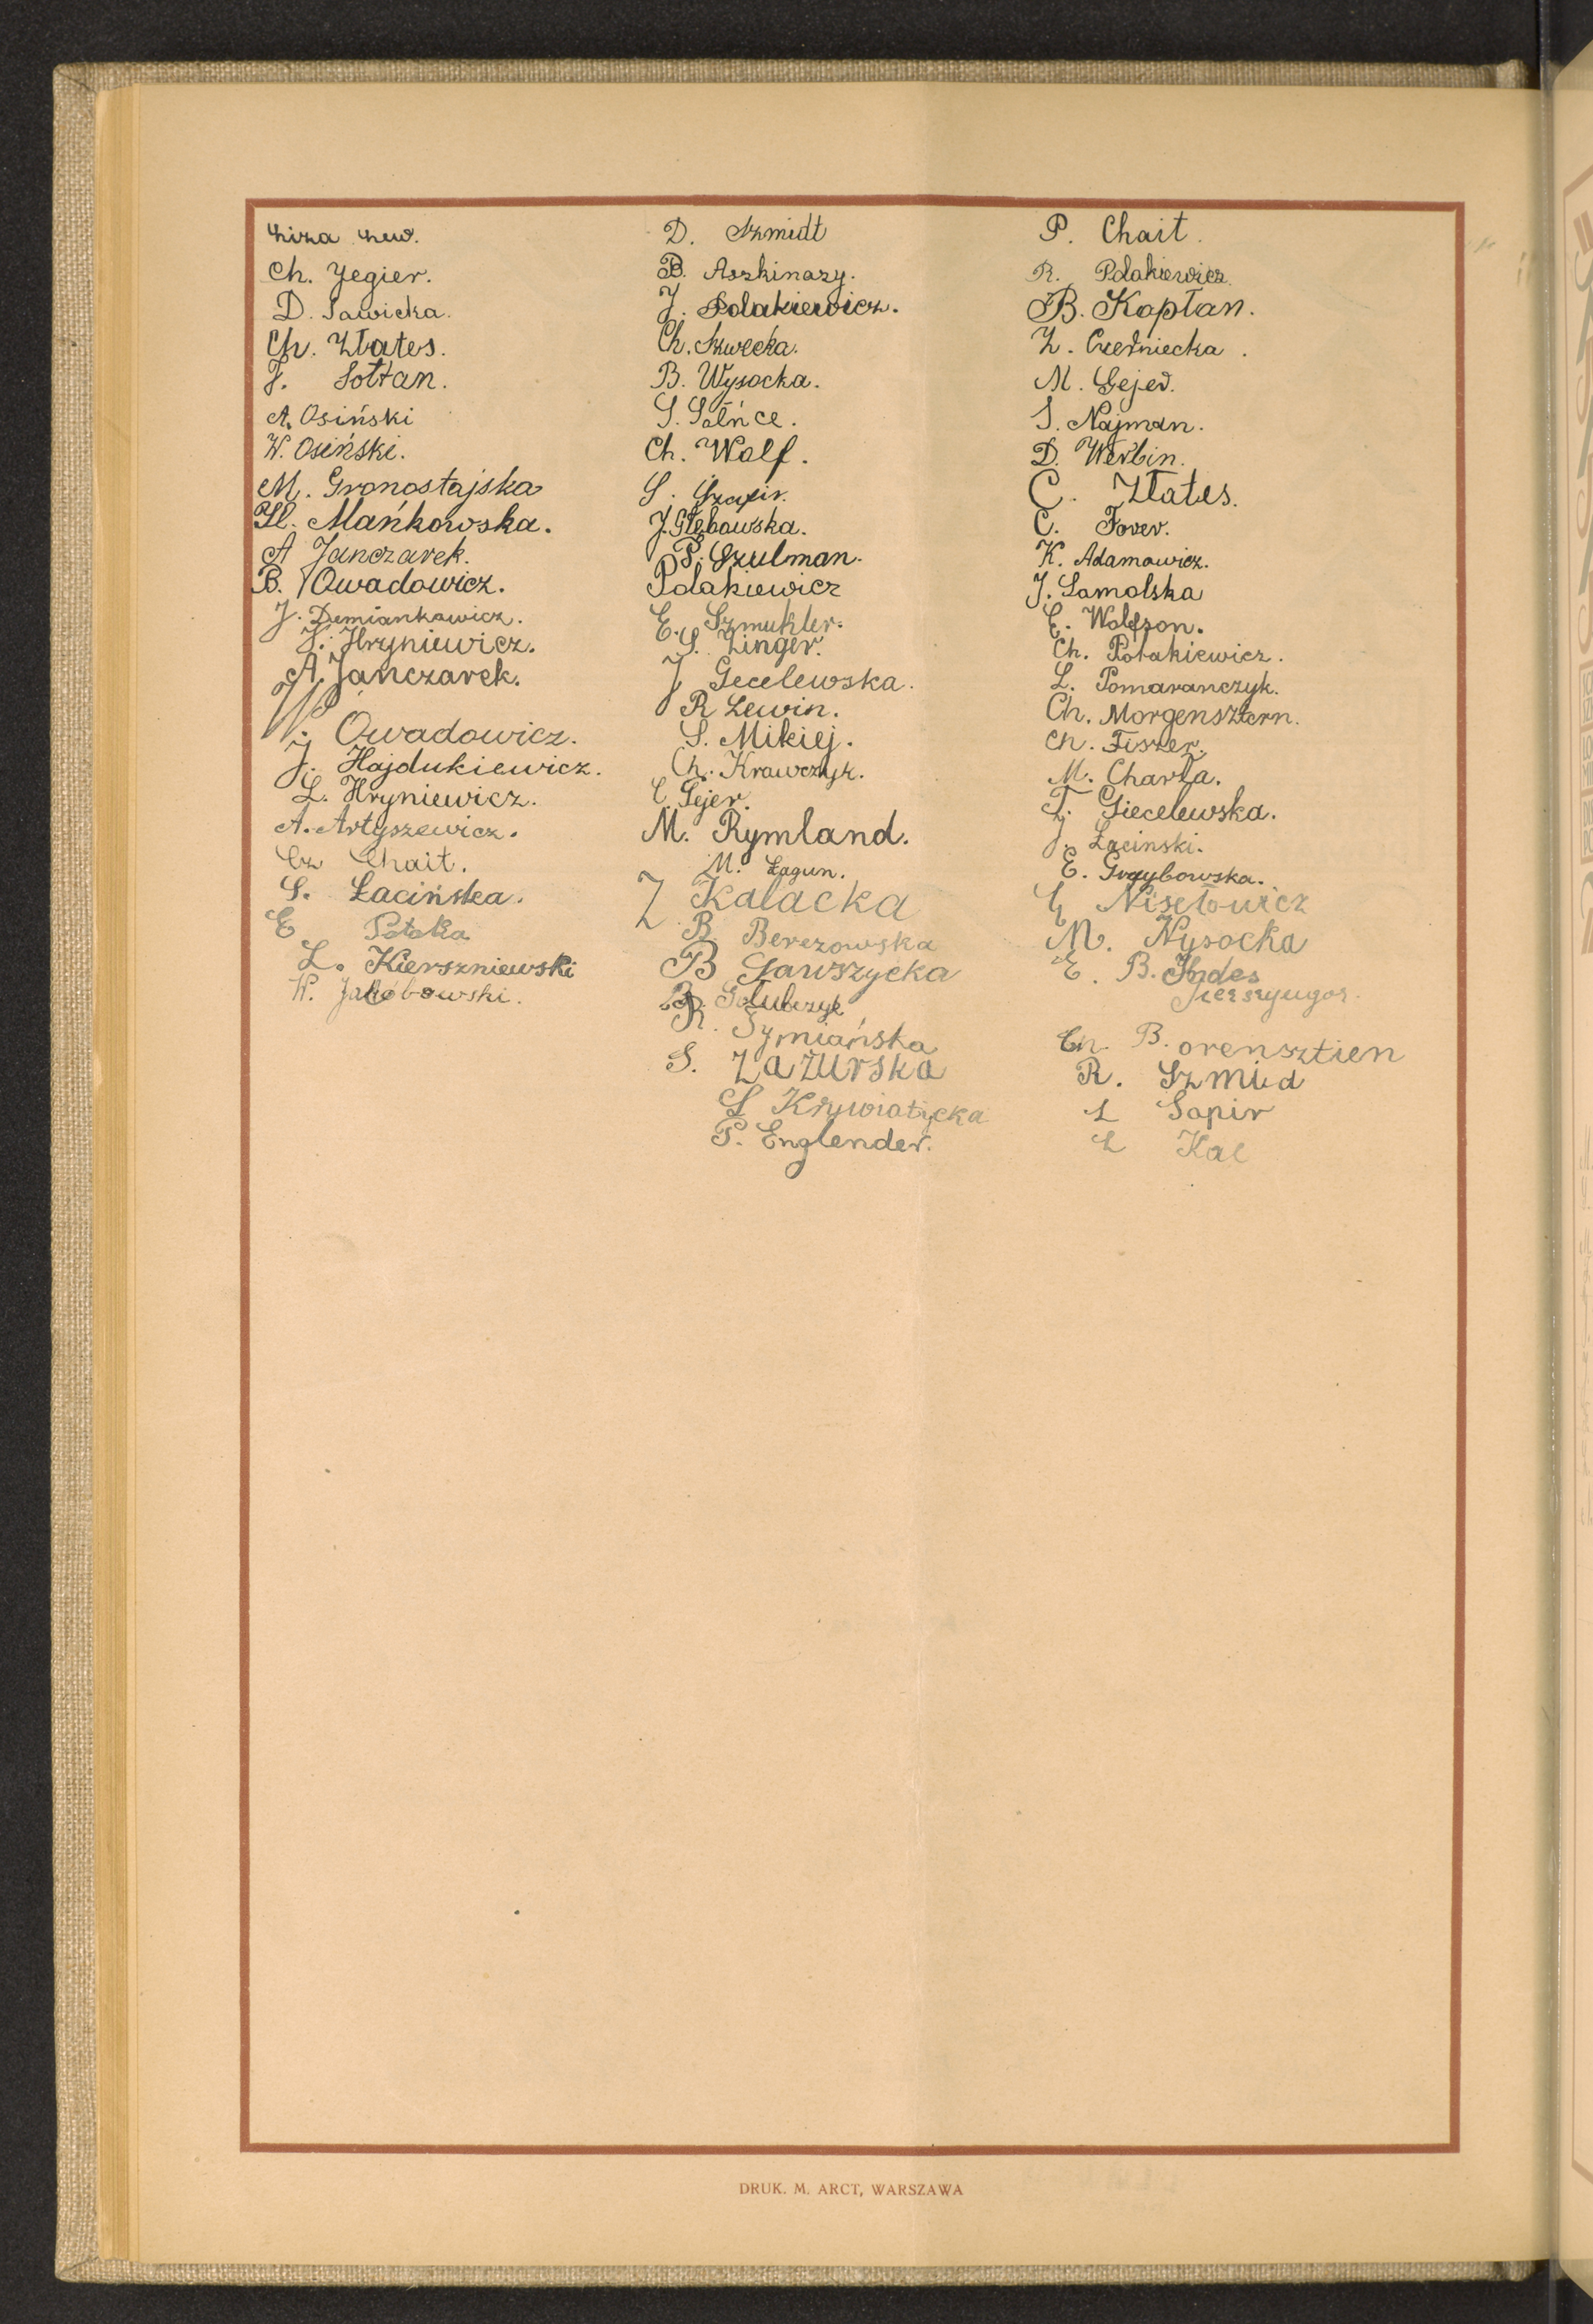 Liza Lew.
Ch. Jegier.
D. Sawicka.
Ch. Złates.
J. Sołtan.
A. Osiński
W. Osiński.
M. Gronostajska
H. Mańkowska.
A Janczarek.
B. Owadowicz.
J. Demiankowicz.
J. Hryniewicz.
A. Janczarek.
W. Owadowicz.
J. Hajdukiewicz.
L. Hryniewicz.
A. Artyszewicz.
Cz Chait.
S. Łacińska.
E Potoka
L. Kierszniewski
W. Jakóbowski.
D. Szmidt
B. Aszkinazy.
J. Polakiewicz.
Ch. Szwecka.
B. Wysocka.
S. Sołńce.
Ch. Wolf.
S. Szapir.
J. Głębowska.
P. Szulman.
Polakiewicz
E. Szmukler.
S. Zinger.
J Gecelewska.
R Lewin.
S. Mikiej.
Ch. Krawczyk.
C. Gejer.
M. Rymland.
M. Łagun.
Z Kalacka
B. Berezowska
B Gawszycka
B. Gołubczyk
R. Symiańska
S. Zazurska
S Krywiatycka
P. Englender.
P. Chait.
R. Polakiewicz
B. Kapłan.
Z. Czerniecka.
M. Gejer.
S. Najman.
D. Werbin.
C. Złates.
C. Forer.
K. Adamowicz.
J. Samolska
E. Wolfson.
Ch. Polakiewicz.
L. Pomarańczyk.
Ch. Morgensztern.
Ch. Fiszer.
M. Charła.
F. Giecelewska.
J. Łaciński.
E. Grzybowska.
G Nisełowicz
M. Wysocka
E. B.
Ch. B. orensztien
R. Szmid
L Sapir
L Kac
DRUK. M. ARCT, WARSZAWA